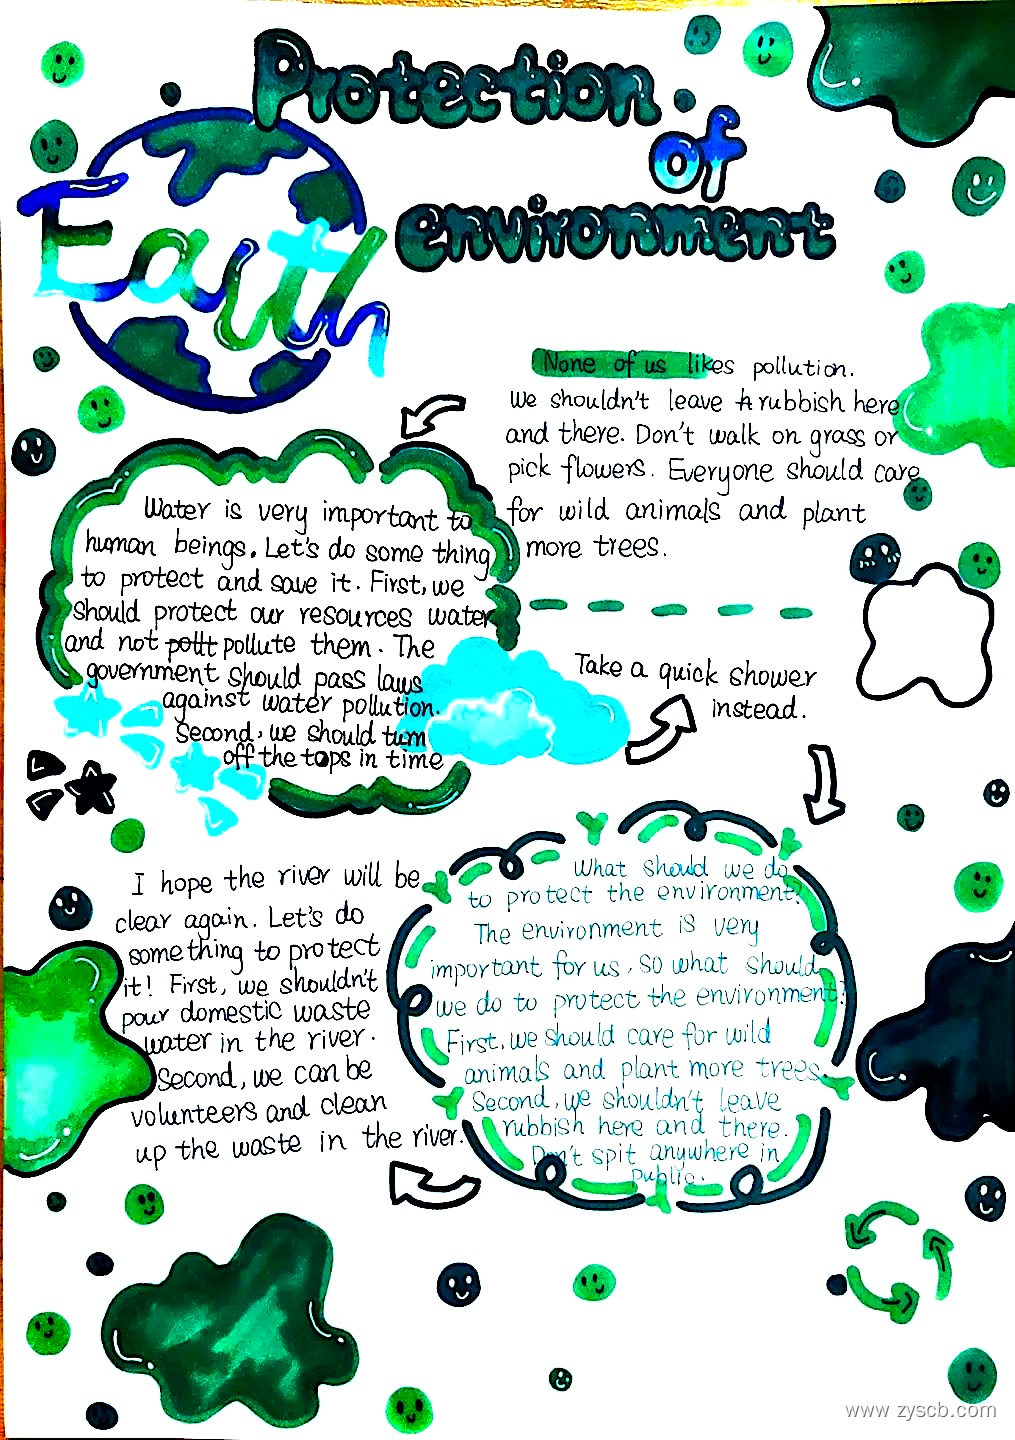 Protection
of
environment
Earth
None of us likes pollution.
We shouldn't leave rubbish here
and there. Don't walk on grass or
pick flowers. Everyone should care
for wild animals and plant
more trees.
Water is very important to
human beings. Let's do some thing
to protect and save it. First, we
should protect our resources water
and not pollute them. The
government should pass laws
against water pollution.
Second, we should turn
off the taps in time
Take a quick shower
instead.
What should we do
to protect the environment?
The environment is very
important for us, so what should
we do to protect the environment?
First, we should care for wild
animals and plant more trees
Second, we shouldn't leave
rubbish here and there.
Don't spit anywhere in
public.
I hope the river will be
clear again. Let's do
something to protect
it! First, we shouldn't
pour domestic waste
water in the river.
Second, we can be
volunteers and clean
up the waste in the river.
www.zyscb.com